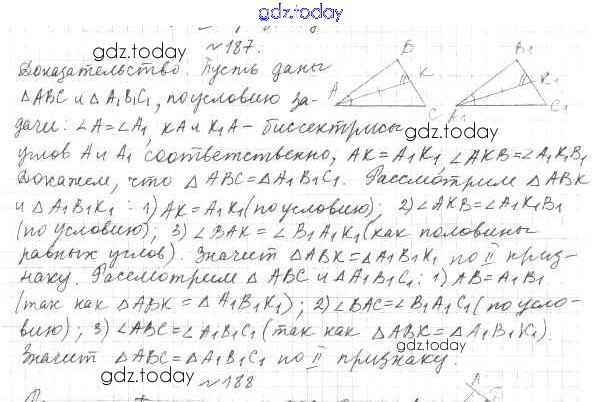 gdz.today
№187.
gdz.today
Доказательство. Пусть даны
△ABC и △A₁B₁C₁, по условию за-
дачи: ∠A=∠A₁, KA и K₁A - биссектрисы
gdz.today
углов A и A₁ соответственно, AK=A₁K₁ ∠AKB=∠A₁K₁B₁
Докажем, что △ABC=△A₁B₁C₁. Рассмотрим △ABK
и △A₁B₁K₁: 1) AK=A₁K₁(по условию); 2)∠AKB=∠A₁K₁B₁
(по условию); 3) ∠BAK = ∠B₁A₁K₁(как половины
равных углов). Значит △ABK=△A₁B₁K₁ по II приз-
наку. Рассмотрим △ABC и △A₁B₁C₁: 1) AB=A₁B₁
(так как △ABK = △A₁B₁K₁); 2)∠BAC=∠B₁A₁C₁(по усло-
вию); 3) ∠ABC=∠A₁B₁C₁(так как △ABK=△A₁B₁K₁).
gdz.today
Значит △ABC=△A₁B₁C₁ по II признаку.
gdz.today
№188
A
B
K
C
A₁
B₁
K₁
C₁
A